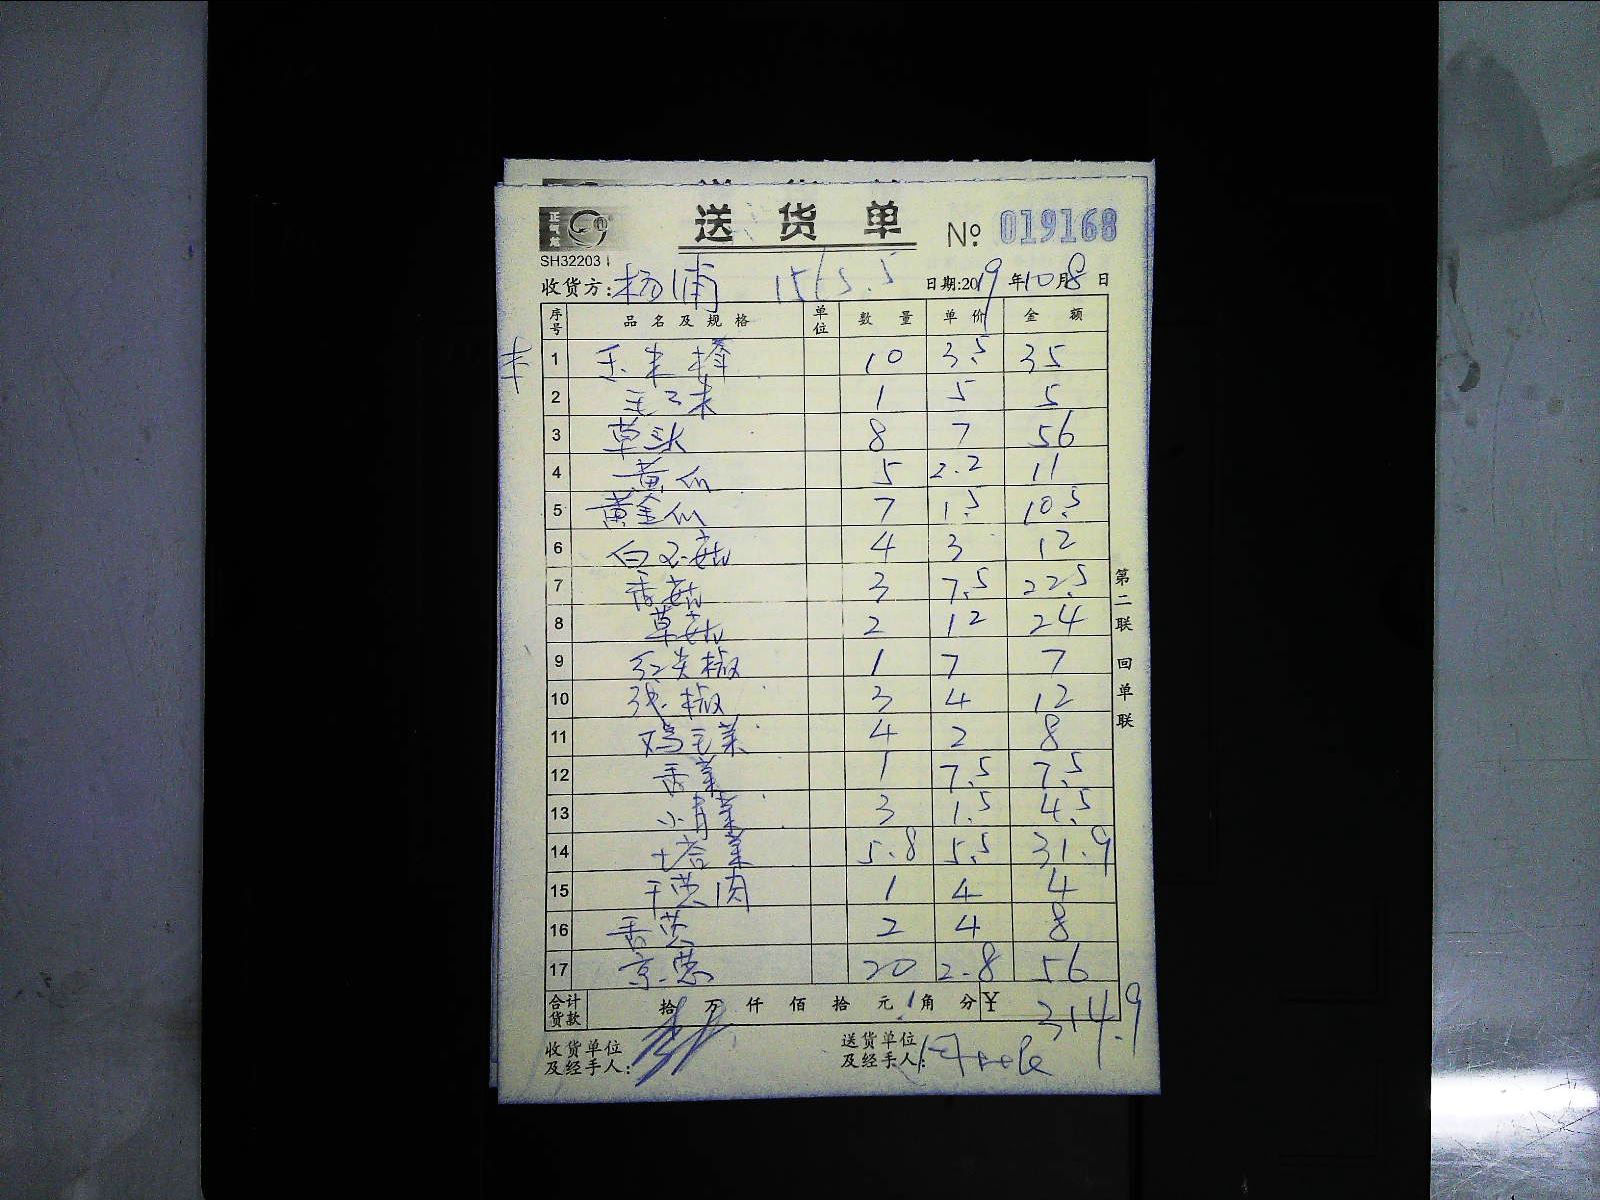 正气炮
送货单 № 019168
SH32203
收货方:杨浦 1565.5 日期:2019年10月8日
序号 品名及规格 单位 数量 单价 金额
1 玉米棒 10 3.5 35
2 玉米 1 5 5
3 草头 8 7 56
4 黄瓜 5 2.2 11
5 黄金瓜 7 1.5 10.5
6 白玉菇 4 3 12
7 香菇 3 7.5 22.5
8 草菇 2 12 24
9 红尖椒 1 7 7
10 椒 3 4 12
11 鸡毛菜 4 2 8
12 香菜 1 7.5 7.5
13 小青菜 3 1.5 4.5
14 塔菜 5.8 5.5 31.9
15 1 4 4
16 香葱 2 4 8
17 京葱 20 2.8 56
合计货款 拾 万 仟 佰 拾 元 角 分 ¥ 314.9
收货单位及经手人: 送货单位及经手人:
第二联 回单联